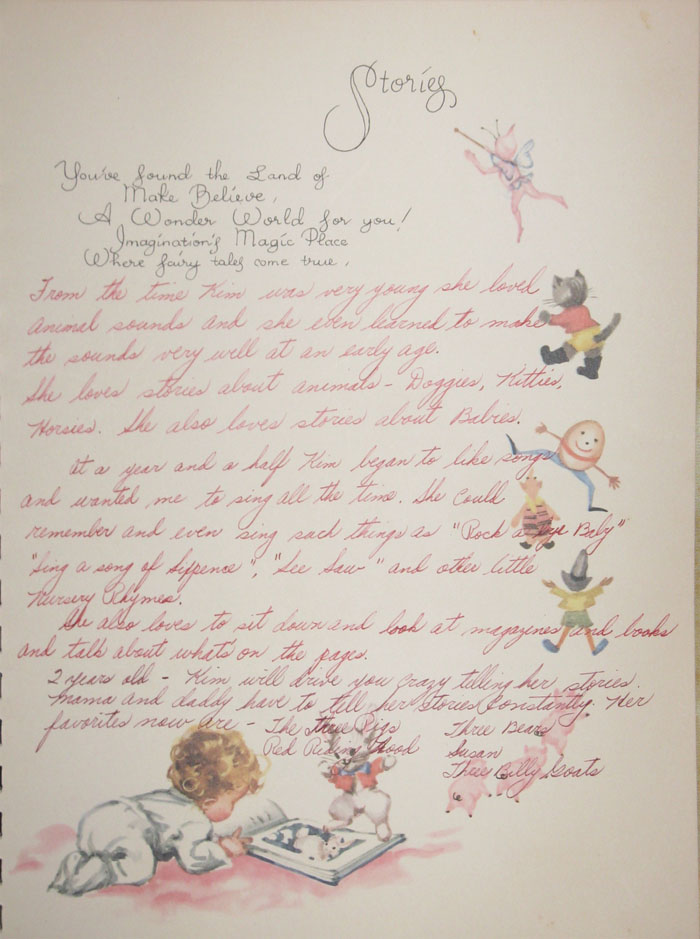 Stories
You've found the Land of
Make Believe,
A Wonder World for you!
Imagination's Magic Place
Where fairy tales come true.
From the time Kim was very young she loved
animal sounds and she even learned to make
the sounds very well at an early age.
She loves stories about animals - Doggies, Kitties,
Horsies. She also loves stories about Babies.
At a year and a half Kim began to like songs
and wanted me to sing all the time. She could
remember and even sing such things as "Rock a bye Baby"
"Sing a song of Sixpence", "See Saw" and other little
Nursery Rhymes.
She also loves to sit down and look at magazines and books
and talk about what's on the pages.
2 years old - Kim will drive you crazy telling her stories.
Mama and daddy have to tell her stories constantly. Her
favorites now are - The three Pigs Three Bears
Red Riding Hood Susan
Three Billy Goats